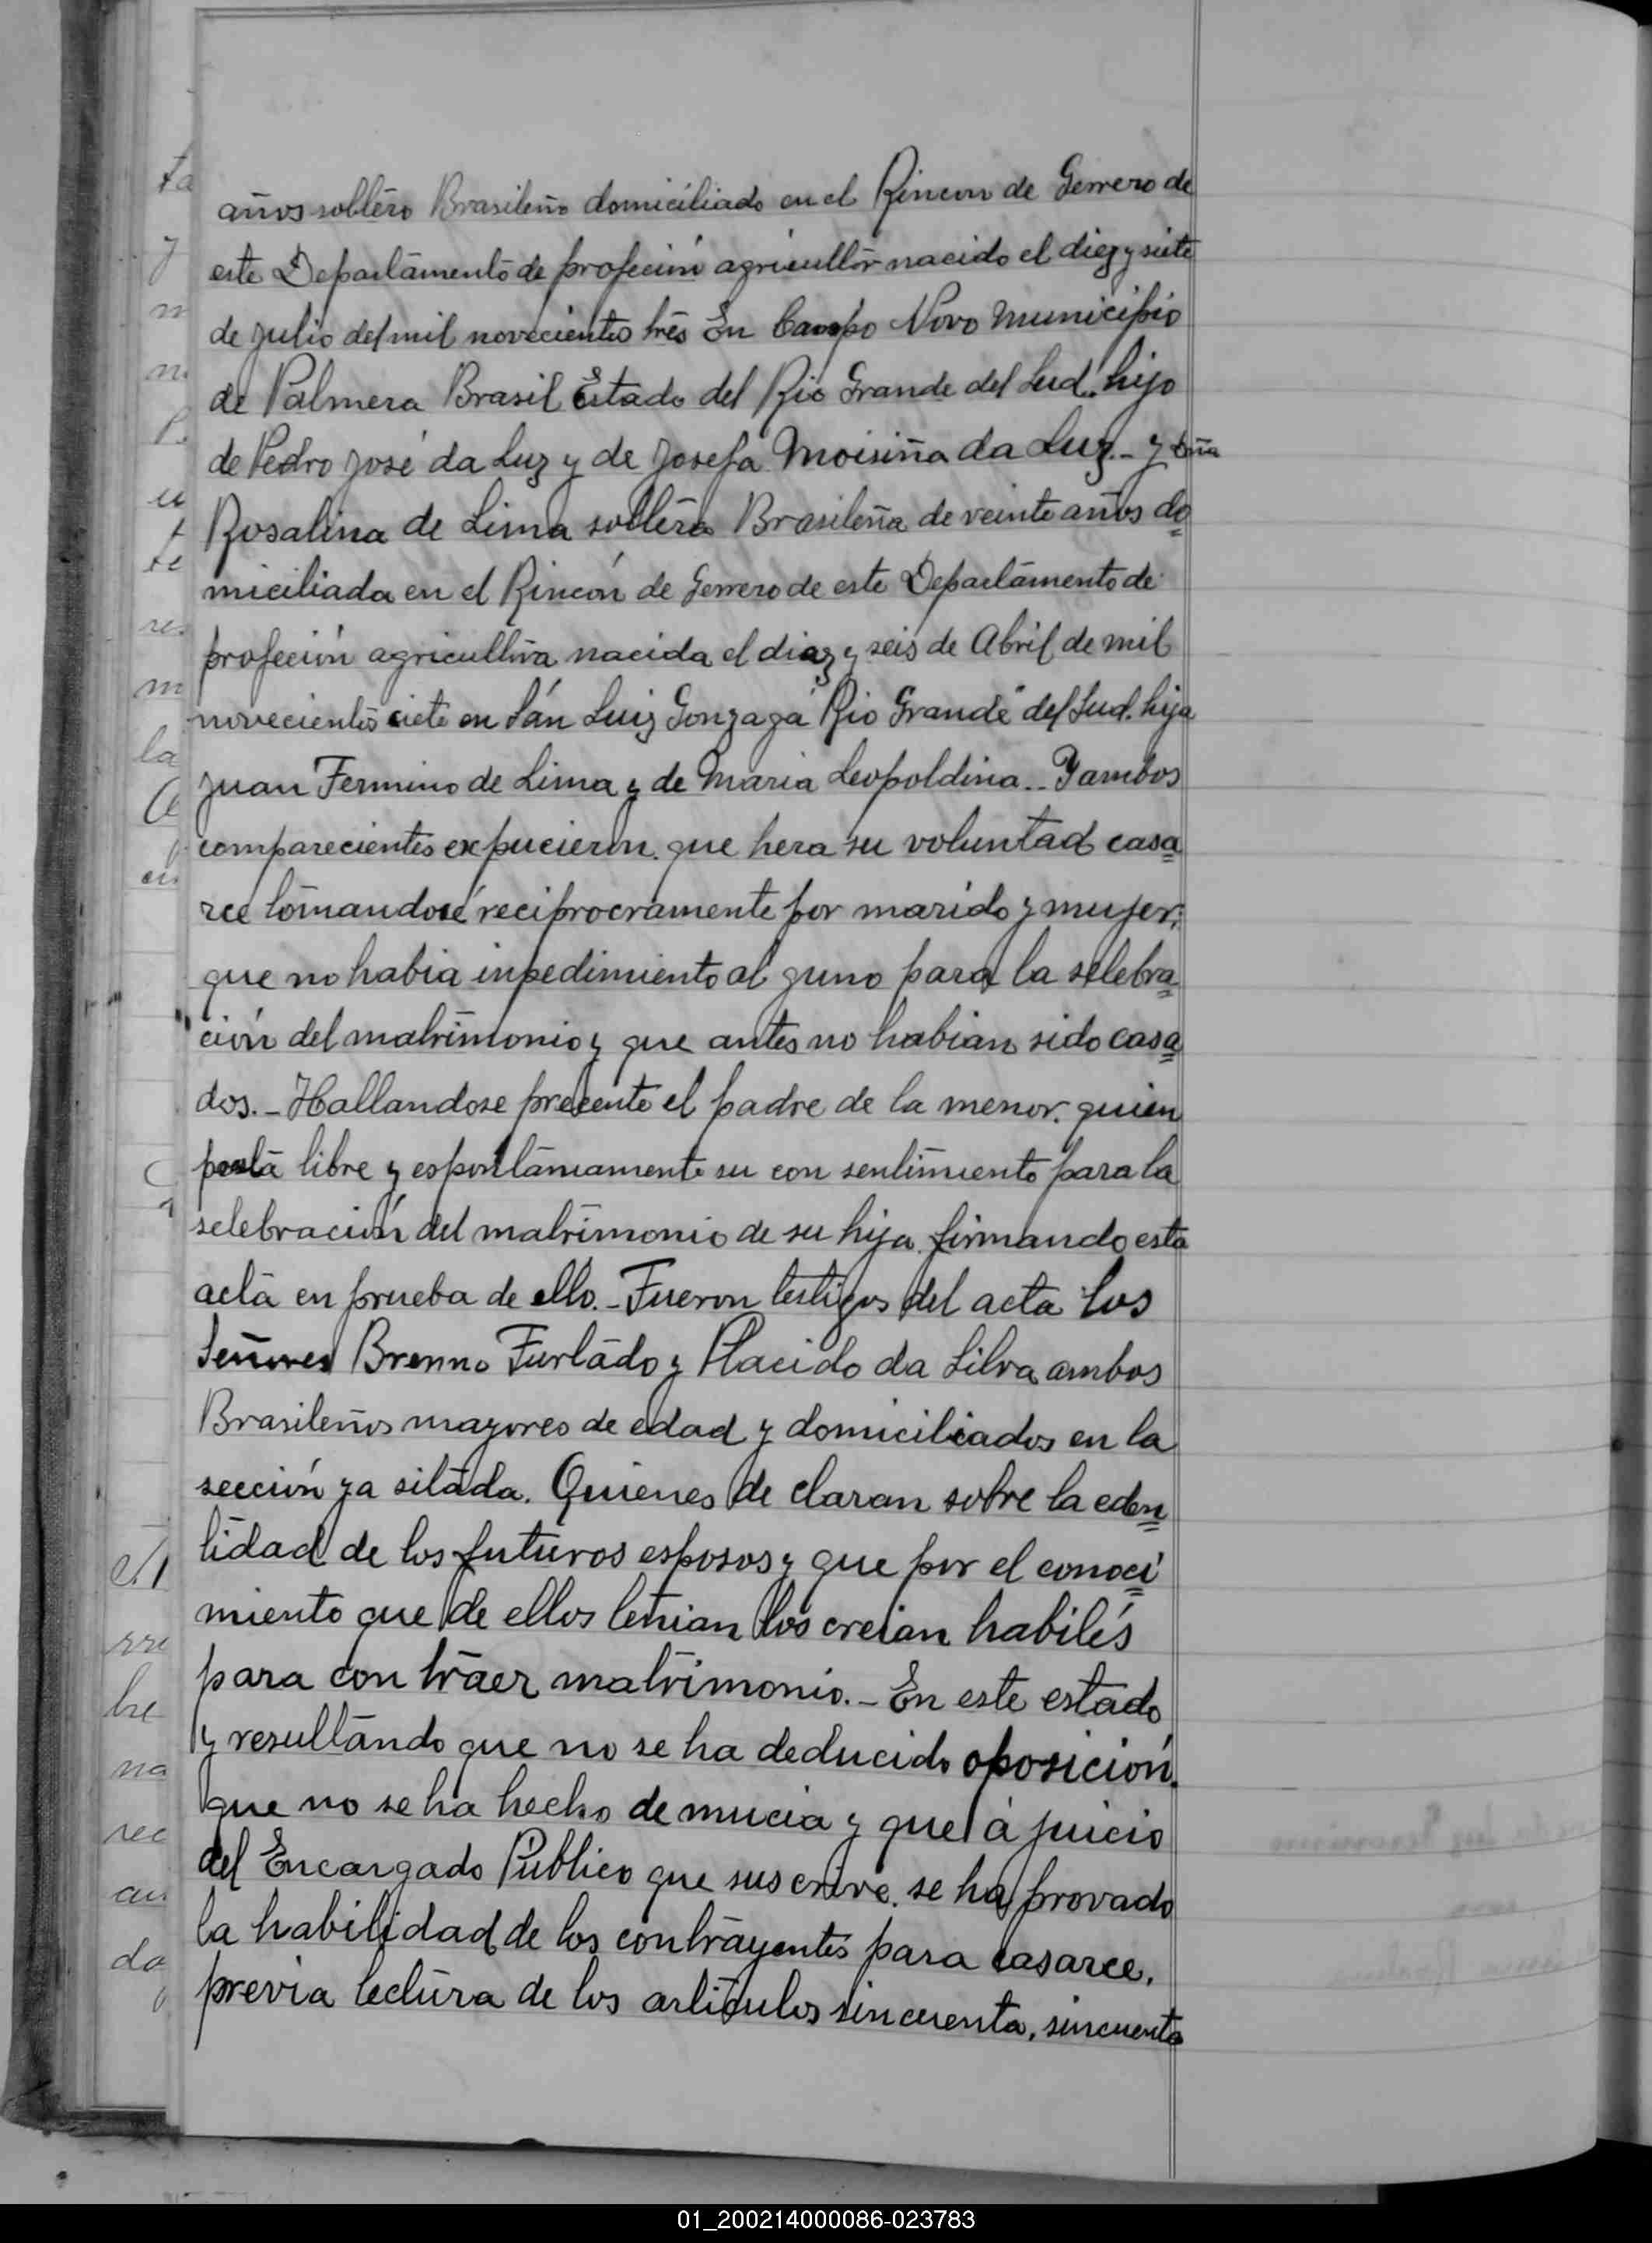 años soltero Brasileño domiciliado en el Rincon de Gerrero de
este Departamento de profeción agricultor nacido el diez y siete
de julio del mil novecientos tres En Campo Novo Municipio
de Palmera Brasil Estado del Rio Grande del Sud. hijo
de Pedro José da Luz y de Josefa Moisiña da Luz. - y
Rosalina de Lima soltera Brasileña de veinte años do=
miciliada en el Rincón de Gerrero de este Departamento de
profeción agricultora nacida el diaz y seis de Abril de mil
novecientos ciete en San Luiz Gonzaga Rio Grande del Sud. hija
Juan Fermino de Lima y de Maria Leopoldina. - Y ambos
comparecientes expucieron. que hera su voluntad casa=
rce tomandocé reciprocramente por marido y mujer;
que no habia inpedimiento al guno para la selebra=
ción del matrimonio y que antes no habian sido casa=
dos. - Hallandose precente el padre de la menor. quien
libre y espontaniamente su con sentimiento para la
selebración del matrimonio de su hija firmando esta
acta en prueba de ello. - Fueron testigos del acta los
Señores Brenno Furtado y Placido da Silva ambos
Brasileños mayores de edad y domiciliados en la
sección ya sitada. Quienes de claran sobre la eden=
tidad de los futuros esposos y que por el conoci=
miento que de ellos tenian los creian habilés
para con traer matrimonio. - En este estado
y resultando que no se ha deducido oposición.
que no se ha hecho de nuncia y que á juicio
del Encargado Público que suscrive. se ha provado
la habilidad de los contrayentes para casarce.
previa lectura de los articulos sincuenta, sincuenta
01_200214000086-023783